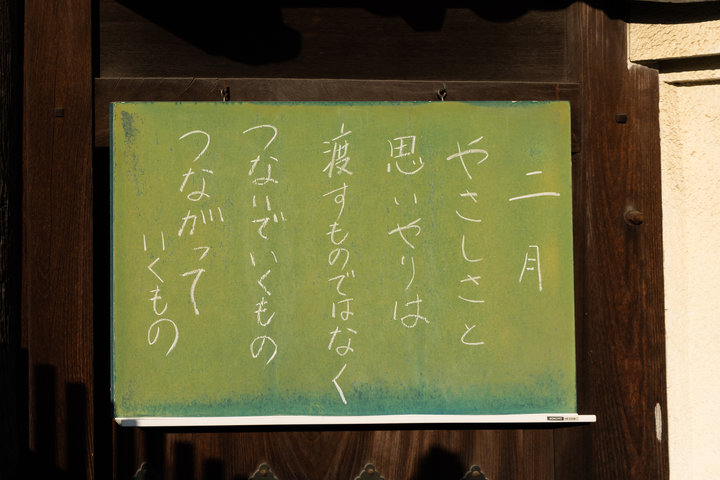 二月
やさしさと
思いやりは
渡すものではなく
つないでいくもの
つながって
いくもの
KOKUYO